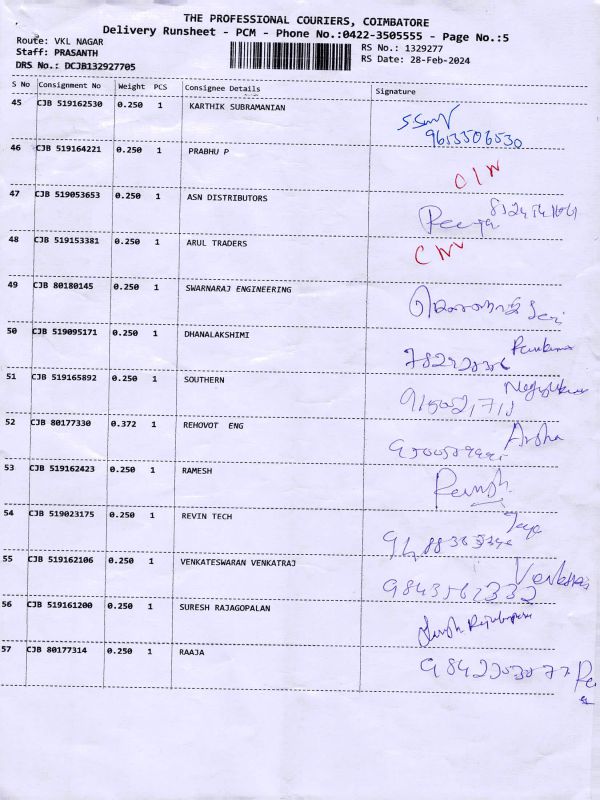 THE PROFESSIONAL COURIERS, COIMBATORE
Delivery Runsheet - PCM - Phone No.:0422-3505555 - Page No.:5
Route: VKL NAGAR RS No.: 1329277
Staff: PRASANTH RS Date: 28-Feb-2024
DRS No.: DCJB132927705
S No Consignment No Weight PCS Consignee Details Signature
45 CJB 519162530 0.250 1 KARTHIK SUBRAMANIAN
9653506530
46 CJB 519164221 0.250 1 PRABHU P
47 CJB 519053653 0.250 1 ASN DISTRIBUTORS
48 CJB 519153381 0.250 1 ARUL TRADERS
49 CJB 80180145 0.250 1 SWARNARAJ ENGINEERING
50 CJB 519095171 0.250 1 DHANALAKSHMI
51 CJB 519165892 0.250 1 SOUTHERN
52 CJB 80177330 0.372 1 REHOVOT ENG
Arsha
53 CJB 519162423 0.250 1 RAMESH
54 CJB 519023175 0.250 1 REVIN TECH
Jaya
55 CJB 519162106 0.250 1 VENKATESWARAN VENKATRAJ
56 CJB 519161200 0.250 1 SURESH RAJAGOPALAN
57 CJB 80177314 0.250 1 RAAJA